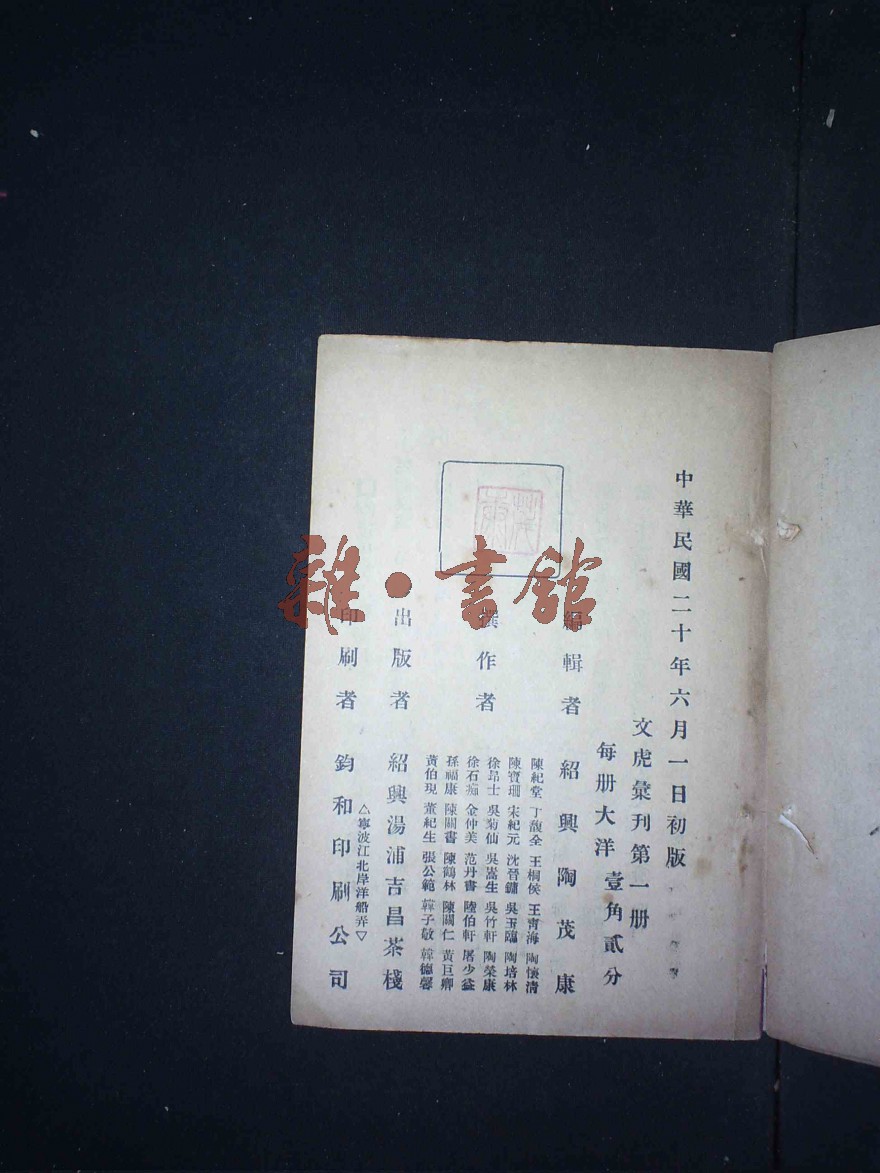 中華民國二十年六月一日初版
文虎彙刊第一册
每册大洋壹角貳分
編輯者 紹興陶茂康
撰作者
陳紀堂 丁馥全 王桐侯 王靑海 陶懷淸
陳寶珊 宋紀元 沈晉鏞 吳玉臨 陶培林
徐昻士 吳菊仙 吳嵩生 吳竹軒 陶榮康
徐石痴 金仲美 范丹書 陸伯軒 屠少益
孫福康 陳關書 陳鶴林 陳關仁 黃巨卿
黃伯現 董紀生 張公範 韓子敬 韓德馨
出版者 紹興湯浦吉昌茶棧
△寧波江北岸洋船弄▽
印刷者 鈞和印刷公司
茂康
雜·書館